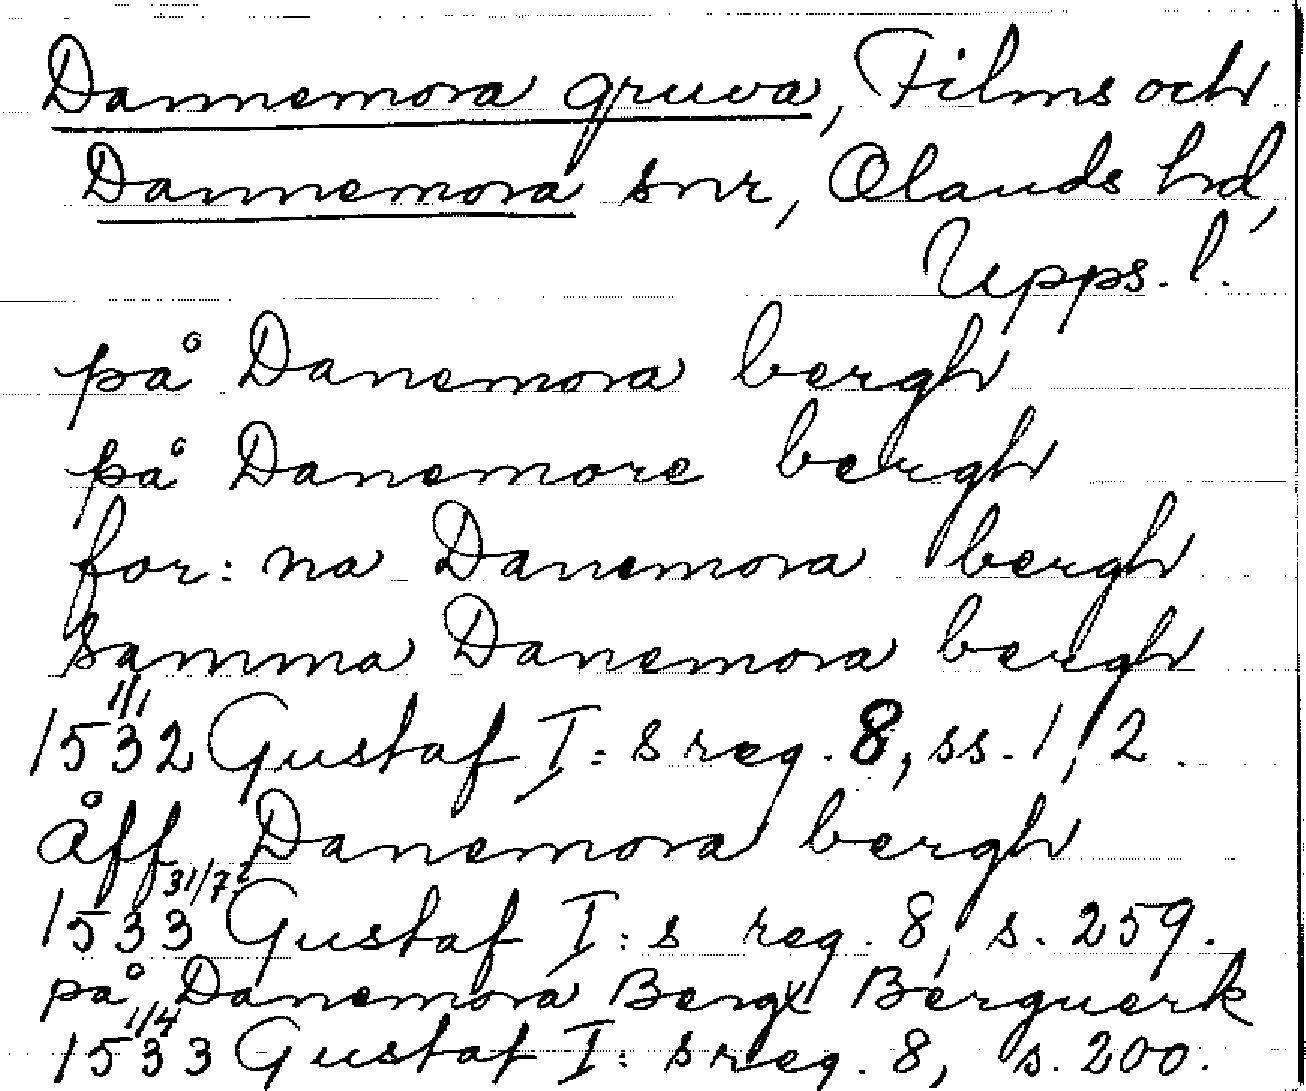 Dannemora gruva, Films och
Dannemora snr, Olands hd,
Upps. l.
på Danemora bergh
på Danemore bergh
for: na Danemora bergh
samma Danemora bergh
1532 1/1 Gustaf I: s reg. 8, ss. 1, 2.
åff Danemora bergh
1533 31/7 Gustaf I: s reg. 8, s. 259.
på Danemora Bergx Berguerk
1533 1/4 Gustaf I: s reg. 8, s. 200.